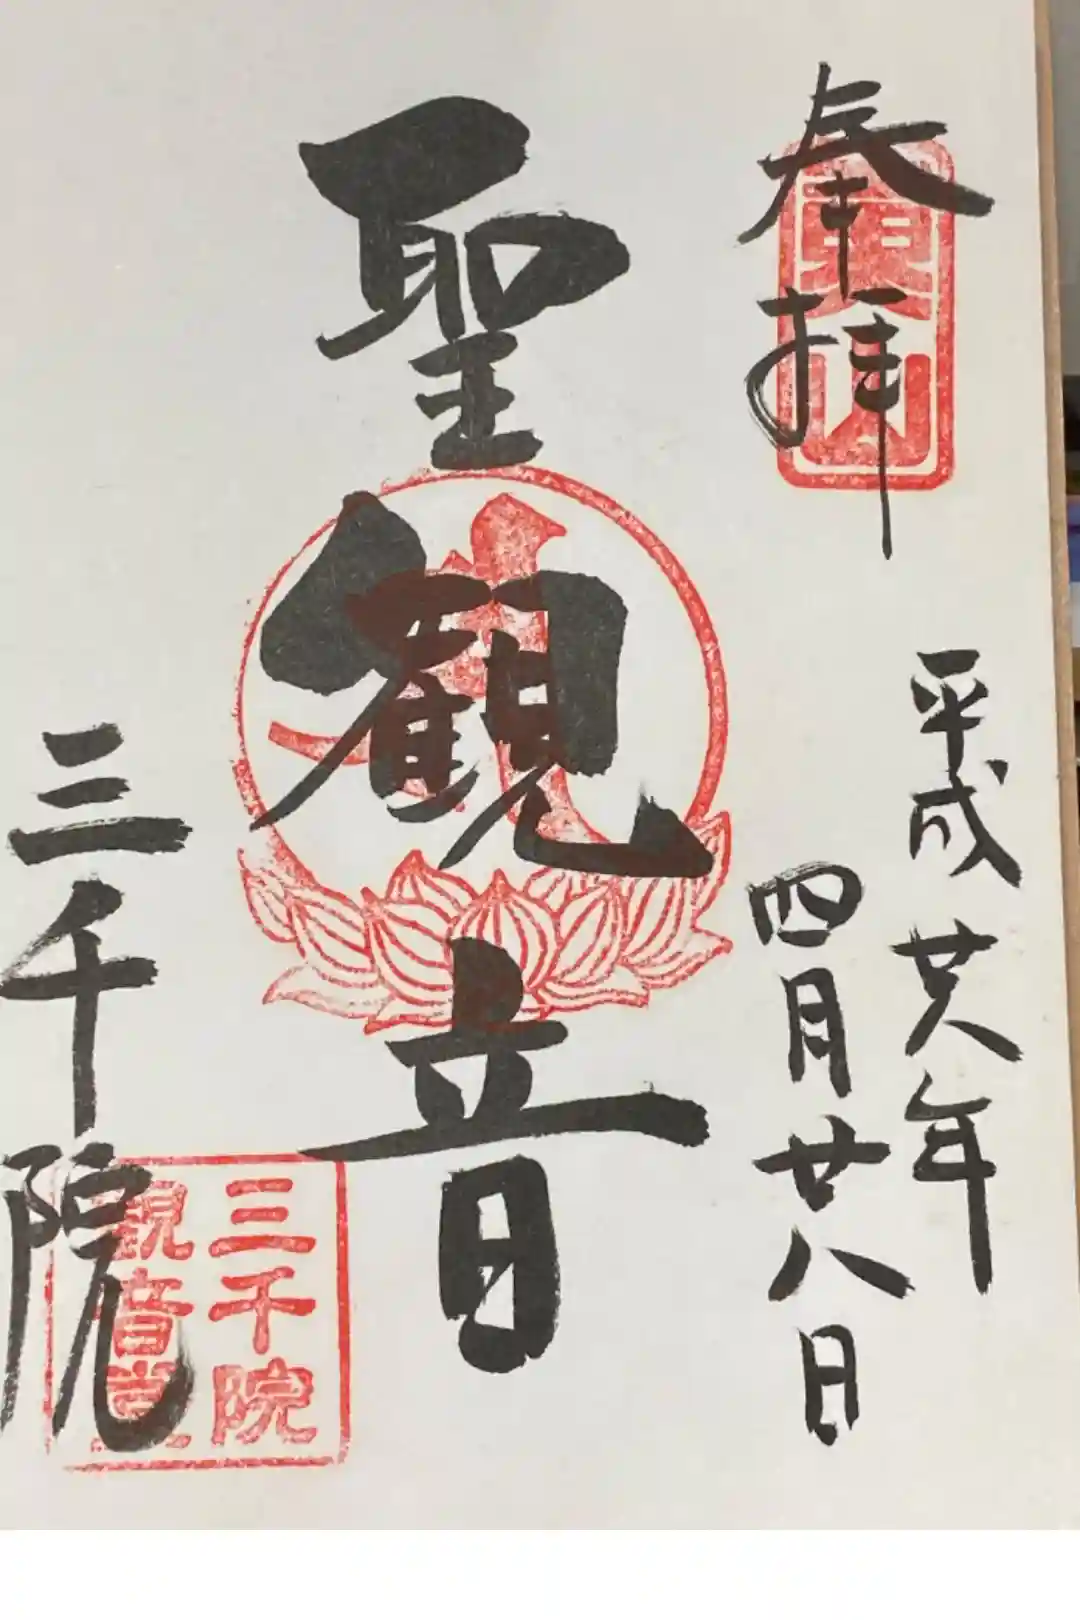 奉拝
平成廿八年
四月廿八日
聖觀音
三千院
三千院